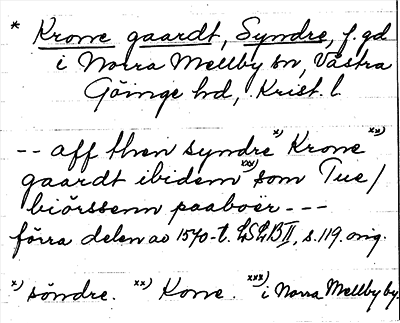 * Krone gaardt, Syndre, f. gd
i Norra Mellby sn, Västra
Göinge hd, Krist. l.
-- aff then syndre x) Krone xx)
gaardt ibidem xxx) som Tue /
biörssenn paaboër ---
förra delen av 1570-t. LSLB II, s. 119. orig.
x) söndre. xx) Kone. xxx) i Norra Mellby by.